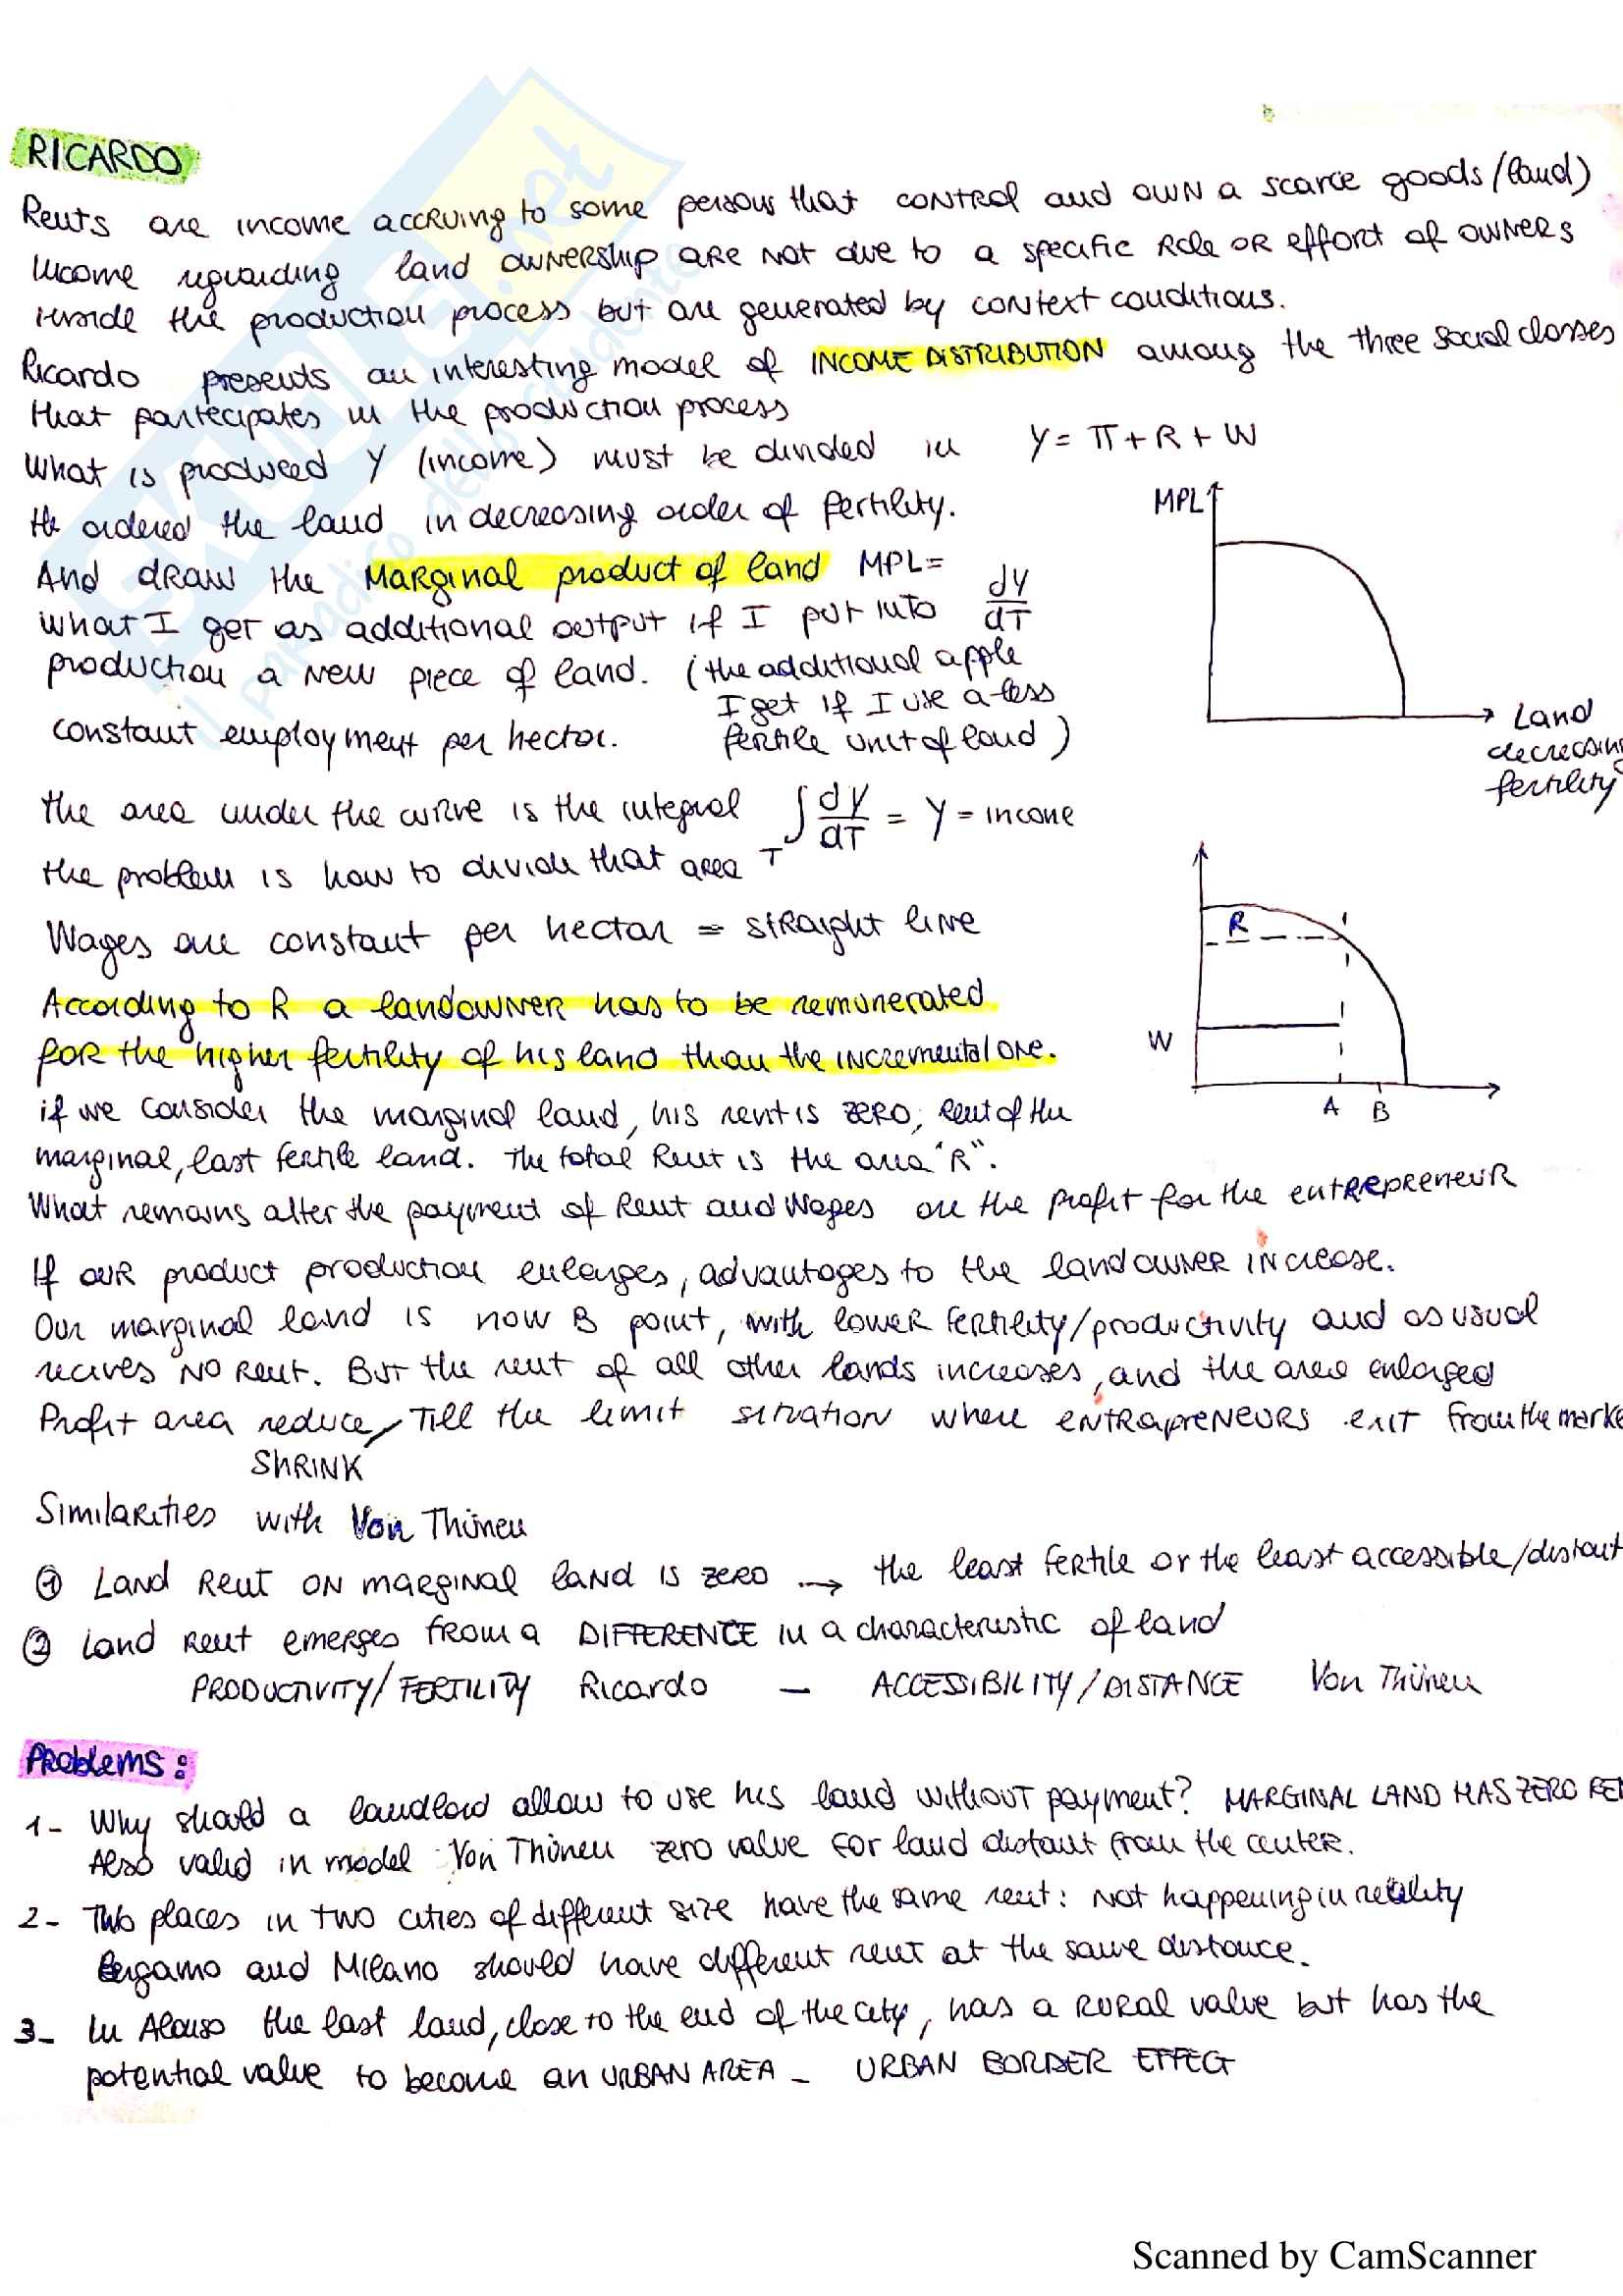 RICARDO
Rents are income accruing to some persons that control and own a scarce goods/(land)
Income reguarding land ownership are not due to a specific role or effort of owners
inside the production process but are generated by context conditions.
Ricardo presents an interesting model of INCOME DISTRIBUTION among the three social classes
that partecipates in the production process
What is produced Y (income) must be divided in Y = π + R + W
He ordered the land in decreasing order of fertility.
MPL
And draw the Marginal product of land MPL= dY/dT
what I get as additional output if I put into
production a new piece of land. (the additional apple
I get if I use a less
constant employment per hector. fertile unit of land)
Land
decreasing
fertility
the area under the curve is the integral ∫ dY/dT = Y = income
the problem is how to divide that area T
Wages are constant per hectar = straight line
R
According to R a landowner has to be remunerated
for the higher fertility of his land than the incremental one.
W
A B
if we consider the marginal land, his rent is ZERO; Rent of the
marginal, last fertile land. The total Rent is the area "R".
What remains alter the payment of Rent and Wages are the profit for the entrepreneur
If our product production enlarges, advantages to the landowner increase.
Our marginal land is now B point, with lower fertility/productivity and as usual
recives NO Rent. But the rent of all other lands increases, and the area enlarged
Profit area reduce, Till the limit situation where entrapreneurs exit from the marke
SHRINK
Similarities with Von Thünen
① LAND RENT ON MARGINAL LAND IS ZERO → the least fertile or the least accessible/distant
② Land Rent emerges from a DIFFERENCE in a characteristic of land
PRODUCTIVITY/FERTILITY Ricardo — ACCESSIBILITY/DISTANCE Von Thünen
Problems:
1- Why should a landlord allow to use his land without payment? MARGINAL LAND HAS ZERO REN
Also valid in model Von Thünen zero value for land distant from the center.
2- Two places in two cities of different size have the same rent: Not happening in reality
Bergamo and Milano should have different rent at the same distance.
3- In Alonso the last land, close to the end of the city, has a RURAL value but has the
potential value to become an URBAN AREA - URBAN BORDER EFFECT
Scanned by CamScanner